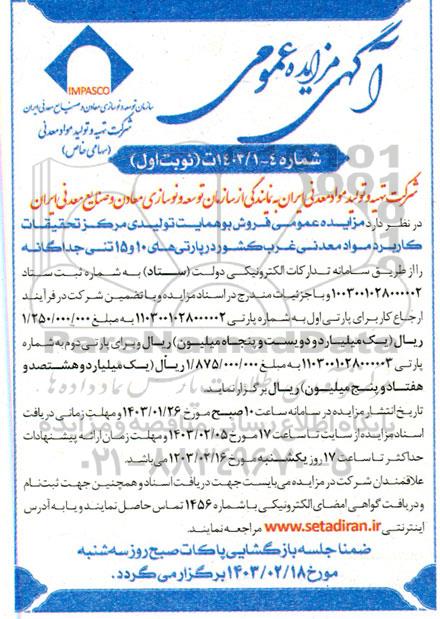 آگهی مزایده عمومی
IMPASCO
سازمان توسعه و نوسازی معادن و صنایع معدنی ایران
شرکت تهیه و تولید مواد معدنی
(سهامی خاص)
شماره ۴-۱۴۰۳/۱ت (نوبت اول)
شرکت تهیه و تولید مواد معدنی ایران به نمایندگی از سازمان توسعه و نوسازی معادن و صنایع معدنی ایران
در نظر دارد مزایده عمومی فروش بوهمایت تولیدی مرکز تحقیقات
کاربرد مواد معدنی غرب کشور در پارتی‌های ۱۰ و ۱۵ تنی جداگانه
را از طریق سامانه تدارکات الکترونیکی دولت (ستاد) به شماره ثبت ستاد
۱۰۰۳۰۰۱۰۲۸۰۰۰۰۰۲ و با جزئیات مندرج در اسناد مزایده و با تضمین شرکت در فرآیند
ارجاع کار برای پارتی اول به شماره پارتی ۱۱۰۳۰۰۱۰۲۸۰۰۰۰۰۲ به مبلغ ۱/۲۵۰/۰۰۰/۰۰۰
ریال (یک میلیارد و دویست و پنجاه میلیون) ریال و برای پارتی دوم به شماره
پارتی ۱۱۰۳۰۰۱۰۲۸۰۰۰۰۰۳ به مبلغ ۱/۸۷۵/۰۰۰/۰۰۰ ریال (یک میلیارد و هشتصد و
هفتاد و پنج میلیون) ریال برگزار نماید.
تاریخ انتشار مزایده در سامانه ساعت ۱۰ صبح مورخ ۱۴۰۳/۰۱/۲۶ و مهلت زمانی دریافت
اسناد مزایده از سایت تا ساعت ۱۷ مورخ ۱۴۰۳/۰۲/۰۵ و مهلت زمان ارائه پیشنهادات
حداکثر تا ساعت ۱۷ روز یکشنبه مورخ ۱۴۰۳/۰۲/۱۶ می‌باشد.
علاقمندان شرکت در مزایده می‌بایست جهت دریافت اسناد و همچنین جهت ثبت نام
و دریافت گواهی امضای الکترونیکی با شماره ۱۴۵۶ تماس حاصل نمایند و یا به آدرس
اینترنتی www.setadiran.ir مراجعه نمایند.
ضمنا جلسه بازگشایی پاکات صبح روز سه شنبه
مورخ ۱۴۰۳/۰۲/۱۸ برگزار می گردد.